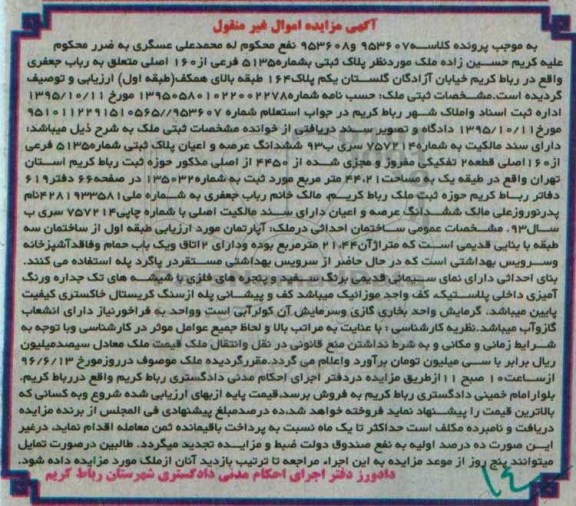 آگهی مزایده اموال غیر منقول
به موجب پرونده کلاسه ۹۵۳۶۰۷ و۹۵۳۶۰۸ نفع محکوم له محمدعلی عسگری به ضرر محکوم
علیه کریم حسین زاده ملک موردنظر پلاک ثبتی بشماره۵۱۳۵ فرعی از۱۶۰ اصلی متعلق به رباب جعفری
واقع در رباط کریم خیابان آزادگان گلستان یکم پلاک۱۶۴ طبقه بالای همکف(طبقه اول) ارزیابی و توصیف
گردیده است.مشخصات ثبتی ملک: حسب نامه شماره۱۳۹۵۰۵۸۰۱۰۲۲۰۰۲۲۷۸ مورخ ۱۳۹۵/۱۰/۱۱
اداره ثبت اسناد واملاک شهر رباط کریم در جواب استعلام شماره ۹۵۳۶۰۷//۹۵۱۰۱۱۲۲۹۱۵۱۰۵۶۵
مورخ۱۳۹۵/۱۰/۱۱ دادگاه و تصویر سند دریافتی از خوانده مشخصات ثبتی ملک به شرح ذیل میباشد:
دارای سند مالکیت به شماره۷۵۷۲۱۴ سری ب۹۳ ششدانگ عرصه و اعیان پلاک ثبتی شماره۵۱۳۵ فرعی
از۱۶۰اصلی قطعه۲ تفکیکی مفروز و مجزی شده از ۴۴۵۰ از اصلی مذکور حوزه ثبت رباط کریم استان
تهران واقع در طبقه یک به مساحت۴۴.۲۱ متر مربع مورد ثبت به شماره۱۳۵۰۳۲ در صفحه۶۶ دفتر۶۱۹
دفاتر رباط کریم حوزه ثبت ملک رباط کریم. مالک خانم رباب جعفری به شماره ملی۴۲۸۱۹۳۳۵۸۱نام
پدرنوروزعلی مالک ششدانگ عرصه و اعیان دارای سند مالکیت اصلی با شماره چاپی۷۵۷۲۱۴ سری ب
سال۹۳. مشخصات عمومی ساختمان احداثی درملک: آپارتمان مورد ارزیابی طبقه اول از ساختمان سه
طبقه با بنایی قدیمی است که متراژآن۲۱.۴۴ مترمربع بوده ودارای ۲اتاق ویک باب حمام وفاقدآشپزخانه
وسرویس بهداشتی است که در حال حاضر از سرویس بهداشتی مستقردر پاگرد پله استفاده می کنند.
بنای احداثی دارای نمای سیمانی قدیمی برنگ سفید و پنجره های فلزی با شیشه های تک جداره ورنگ
آمیزی داخلی پلاستیک، کف واجد موزائیک میباشد کف و پیشانی پله ازسنگ کریستال خاکستری کیفیت
پایین میباشد. گرمایش واحد بخاری گازی وسرمایش آن کولرآبی است وواحد به فراخورنیاز دارای انشعاب
گازوآب میباشد.نظریه کارشناسی : با عنایت به مراتب بالا و لحاظ جمیع عوامل موثر در کارشناسی وبا توجه به
شرایط زمانی و مکانی و به شرط نداشتن منع قانونی در نقل وانتقال ملک قیمت ملک معادل سیصدمیلیون
ریال برابر با سی میلیون تومان برآورد واعلام می گردد.مقررگردیده ملک موصوف درروزمورخ ۹۶/۶/۱۳
ازساعت۱۰ صبح ۱۱ازطریق مزایده دردفتر اجرای احکام مدنی دادگستری رباط کریم واقع دررباط کریم.
بلوارامام خمینی دادگستری رباط کریم به فروش برسد.قیمت پایه ازبهای ارزیابی شده شروع وبه کسانی که
بالاترین قیمت را پیشنهاد نماید فروخته خواهد شد،ده درصدمبلغ پیشنهادی فی المجلس از برنده مزایده
دریافت و نامبرده مکلف است حداکثر تا یک ماه نسبت به پرداخت باقیمانده ثمن معامله اقدام نماید. درغیر
این صورت ده درصد اولیه به نفع صندوق دولت ضبط و مزایده تجدید میگردد. طالبین درصورت تمایل
میتوانند پنج روز از موعد مزایده به این اجراء مراجعه تا ترتیب بازدید آنان ازملک مورد مزایده داده شود.
دادورز دفتر اجرای احکام مدنی دادگستری شهرستان رباط کریم